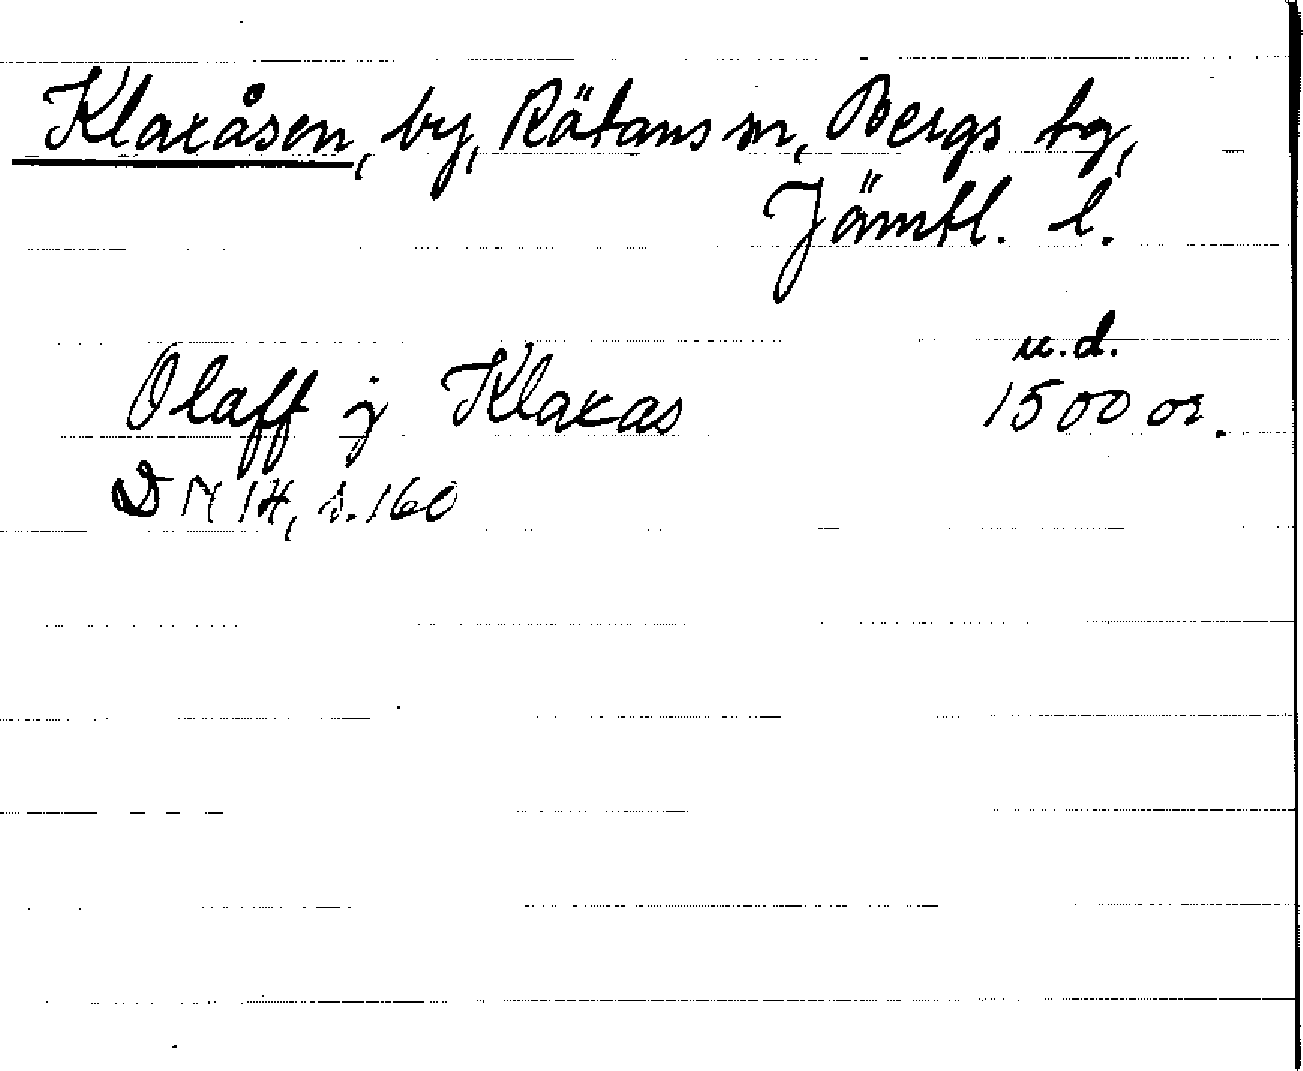 Klaxåsen, by, Rätans sn, Bergs tg,
Jämtl. l.
u.d.
Olaff j Klaxas 1500 os.
DN 14, s. 160